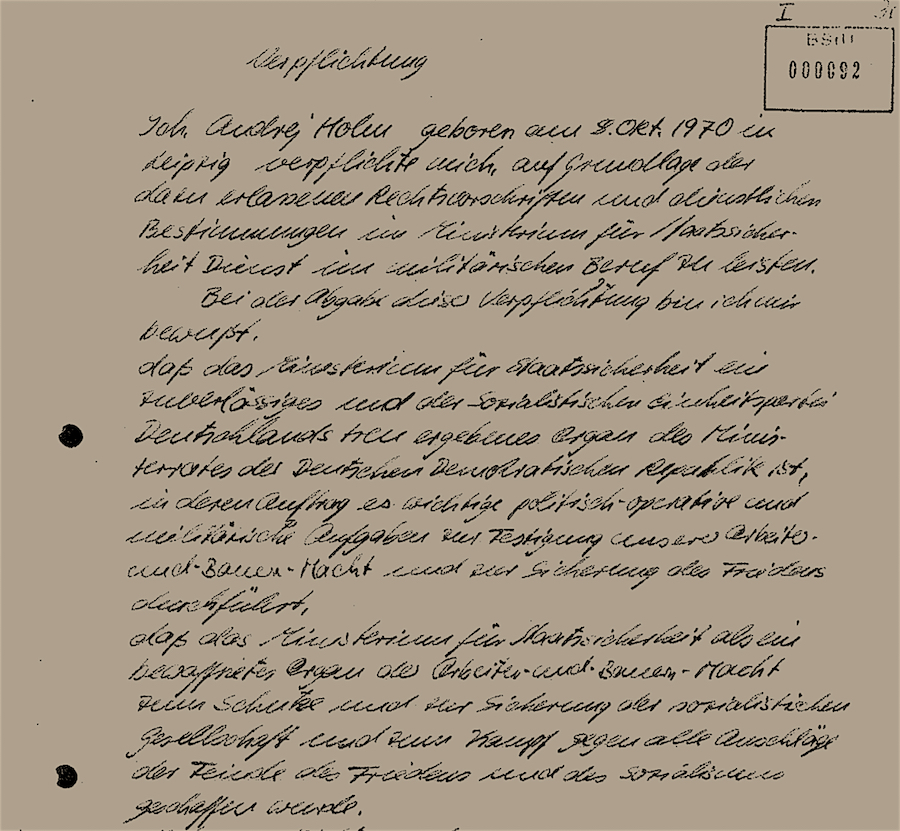 I
BStU
000092
Verpflichtung
Ich, Andrej Holm geboren am 8. Okt. 1970 in
Leipzig verpflichte mich, auf Grundlage der
dazu erlassenen Rechtsvorschriften und dienstlichen
Bestimmungen im Ministerium für Staatssicher-
heit Dienst im militärischen Beruf zu leisten.
Bei der Abgabe dieser Verpflichtung bin ich mir
bewußt,
daß das Ministerium für Staatssicherheit ein
zuverlässiges und der Sozialistischen Einheitspartei
Deutschlands treu ergebenes Organ des Minis-
terrates der Deutschen Demokratischen Republik ist,
in deren Auftrag es wichtige politisch-operative und
militärische Aufgaben zur Festigung unserer Arbeiter-
und-Bauern-Macht und zur Sicherung des Friedens
durchführt,
daß das Ministerium für Staatssicherheit als ein
bewaffnetes Organ der Arbeiter-und-Bauern-Macht
zum Schutze und zur Sicherung der sozialistischen
Gesellschaft und zum Kampf gegen alle Anschläge
der Feinde des Friedens und des Sozialismus
geschaffen wurde.